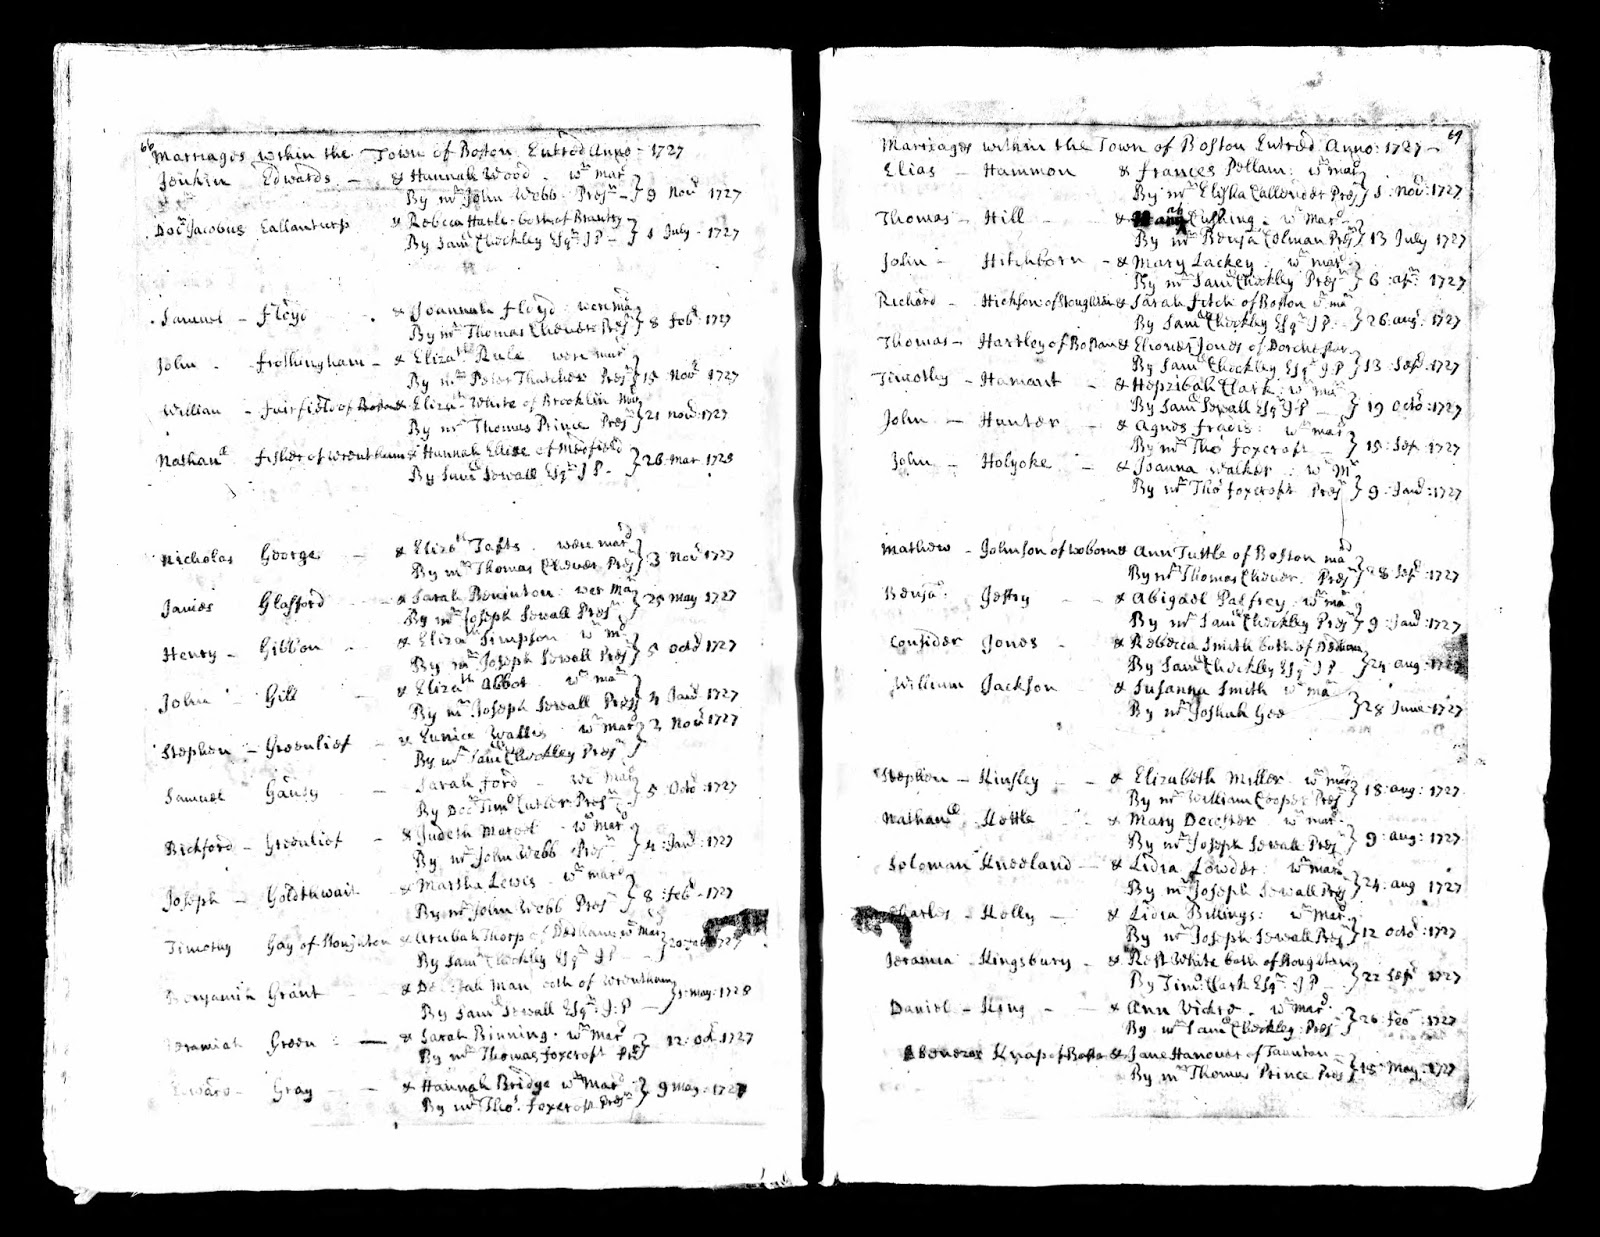 66
Marriages within the Town of Boston Entred Anno - 1727
Jenkin Edwards - & Hannah Wood - wr mard
By mr John Webb Presr - } 9 Novr 1727
Docr Jacobus & Rebecca Harle - both of
By Saml Checkley Esqr J P - } 1 July - 1727
Samuel - Floyd - & Joannah Floyd : were mard
By mr Thomas Cheever Presr } 8 Febr 1727
John - Frothingham - & Elizath Rule were mard
By mr Peter Thatcher Presr } 15 Novr 1727
William - Fairfield of Boston & Elizath White of Brooklin mard
By mr Thomas Prince Presr } 21 novr 1727
Nathanll Fisher of Wrentham & Hannah of Medfield
By Saml Sewall Esqr J P - } 26 Mar 1728
Nicholas George - & Elizath Tafts - were mard
By mr Thomas Cheever Presr } 3 Novr 1727
James Glafford - & Sarah Boninton : wer mard
By mr Joseph Sewall Presr } 25 may 1727
Henry - Gibbon - & Elizath Simpson wr md
By mr Joseph Sewall Presr } 5 octo 1727
John Gill & Elizath Abbot - wr mard
By mr Joseph Sewall Presr } 4 Janr 1727
Stephen - Greenlief - & Eunice Wallis - wr mard } 2 Novr 1727
By mr Saml Checkley Presr
Samuel Sarah Ford - we mard
By Docr Timo Cutler Presr } 5 Octo : 1727
Richford - Greenlief - & Judeth - wr mard
By mr John Webb Presr } 4 : Janr : 1727
Joseph - Goldthwait - & Martha Lewis - wr mard
By mr John Webb Presr } 8 : Febr - 1727
Timothy Gay of Stoughton & Thorp of Dedham wr mard
By Saml Checkley Esqr J P - } 1727
Benjamin Grant - & man both of Wrentham
By Saml Sewall Esqr : J : P - } 1 : may : 1728
Jeramiah Green : - & Sarah Binning - wr Mard
By mr Thomas Foxcroft Presr } 12 : oct 1727
Edward - Gray - & Hannah Bridge wr Mard
By mr Thos Foxcroft Presr } 9 may : 1727
Marriages within the Town of Boston Entred Anno : 1727 -
Elias - Hammon & Frances Petlam : wr mard
By mr Elisha Callender Presr } 1 : Novr : 1727
Thomas - Hill - & Cushing - wr mard
By mr Benja Colman Presr } 13 July 1727
John - Hitchborn - & Mary Lackey - wr mard
By mr Saml Checkley Presr } 6 : apr : 1727
Richard - Hickson of Stoughton & Sarah Fitch of Boston wr mard
By Saml Checkley Esqr J P - } 26 augt : 1727
Thomas - Hartley of Boston & Elioner Jones of Dorchester
By Saml Checkley Esqr J P } 13 Sept : 1727
Timothy - Hamant - & Hepzibah Clark : wr mard
By Saml Sewall Esqr J P - } 19 Octo : 1727
John - Hunter - & Agnes : wr mard
By mr Tho Foxcroft - } 15 : Sep : 1727
John - Holyoke - & Joanna Walker : wr Mrd
By mr Tho Foxcroft Presr } 9 : Janr : 1727
Mathew - Johnson of Woborn & Ann Tuttle of Boston mard
By mr Thomas Cheever - Presr } 28 Sept : 1727
Benja : Jeffry - & Abigael Palfrey - wr mard
By mr Saml Checkley Presr } 9 : Janr : 1727
Consider Jones - & Rebecca Smith both of Dedham
By Saml Checkley Esqr J P - } 24 aug : 1727
William Jackson & Susanna Smith wr mard
By mr Joshuh Gee } 28 June : 1727
Stephen - Kinsley - - & Elizabeth Miller - wr mard
By mr William Cooper Presr } 18 : aug : 1727
Nathanll Kettle - & Mary Decoster - wr mard
By mr Joseph Sewall Presr } 9 : aug : 1727
Soloman Kneeland - & Lidia Lowder : wr mard
By mr Joseph Sewall Presr } 24 : aug 1727
Charles - Kelly - & Lidia Billings : wr mard
By mr Joseph Sewall Presr } 12 octo : 1727
Jeramia - Kingsbury - & White both of Stoughton
By Timo Clark Esqr J P - } 22 Sept 1727
Daniel - King - - & Ann - wr mard
By mr Saml Checkley Presr } 26 : Feb : 1727
Ebenezer Knap of Boston & Jane Hanover of Taunton
By mr Thomas Prince Presr } 18 : May : 1727